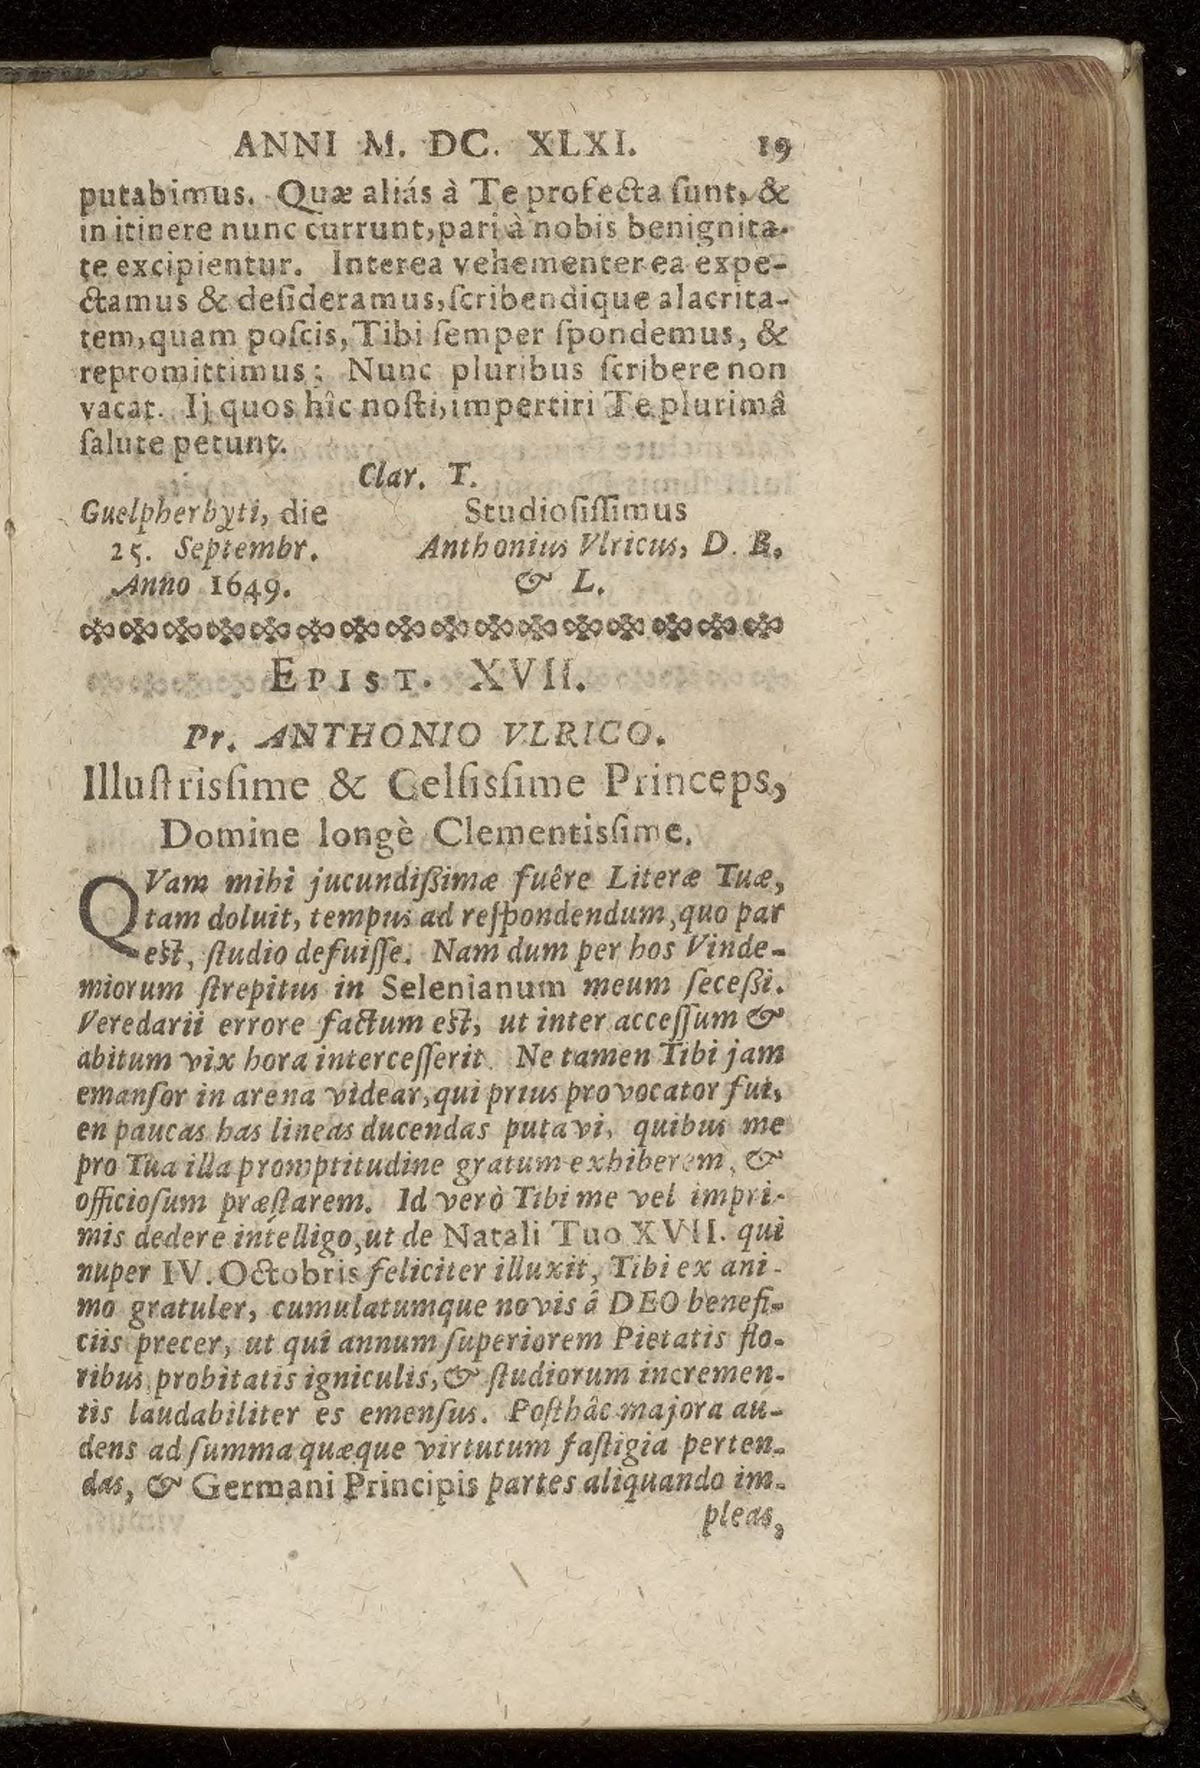 ANNI M. DC. XLXI. 19
putabimus. Quæ aliás à Te profecta ſunt, &
in itinere nunc currunt, pari à nobis benignita-
te excipientur. Interea vehementer ea expe-
ctamus & deſideramus, ſcribendique alacrita-
tem, quam poſcis, Tibi ſemper ſpondemus, &
repromittimus; Nunc pluribus ſcribere non
vacat. Ij quos hîc noſti, impertiri Te plurimâ
ſalute petunt.
Clar. T.
Guelpherbyti, die Studioſiſſimus
25. Septembr. Anthonius Vlricus, D. B.
Anno 1649. & L.
EPIST. XVII.
Pr. ANTHONIO VLRICO.
Illuſtrisſime & Celſisſime Princeps,
Domine longè Clementisſime.
QVam mihi jucundißimæ fuêre Literæ Tuæ,
tam doluit, tempus ad reſpondendum, quo par
eſt, ſtudio defuiſſe. Nam dum per hos Vinde-
miorum ſtrepitus in Selenianum meum ſeceßi.
Veredarii errore factum eſt, ut inter acceſſum &
abitum vix hora interceſſerit. Ne tamen Tibi jam
emanſor in arena videar, qui prius provocator fui,
en paucas has lineas ducendas putavi, quibus me
pro Tua illa promptitudine gratum exhiberem, &
officioſum præſtarem. Id verò Tibi me vel impri-
mis dedere intelligo, ut de Natali Tuo XVII. qui
nuper IV. Octobris feliciter illuxit, Tibi ex ani-
mo gratuler, cumulatumque novis â DEO benefi-
ciis precer, ut quî annum ſuperiorem Pietatis flo-
ribus probitatis igniculis, & ſtudiorum incremen-
tis laudabiliter es emenſus. Poſthâc majora au-
dens ad ſumma quæque virtutum faſtigia perten-
das, & Germani Principis partes aliquando im-
pleas,